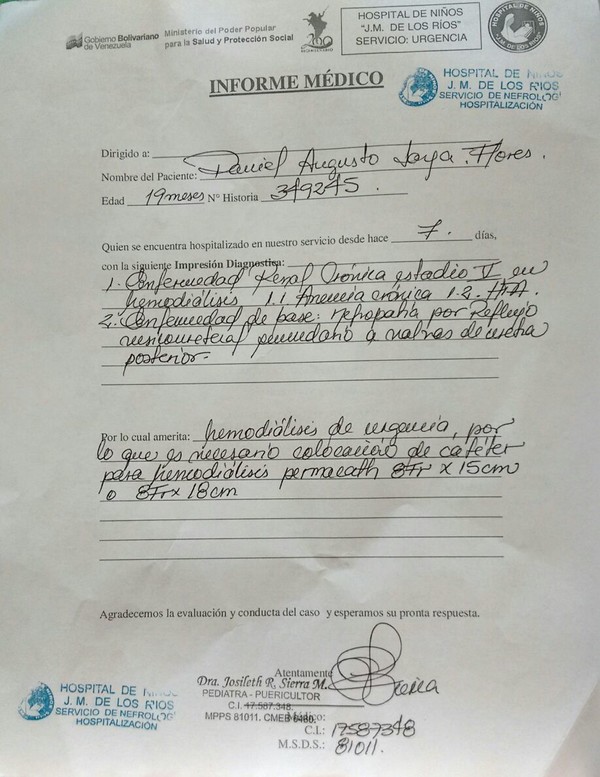 Gobierno Bolivariano de Venezuela
Ministerio del Poder Popular
para la Salud y Protección Social
200
HOSPITAL DE NIÑOS
"J.M. DE LOS RÍOS"
SERVICIO: URGENCIA
HOSPITAL DE NIÑOS
J.M. DE LOS RIOS
INFORME MÉDICO
HOSPITAL DE NIÑOS
J. M. DE LOS RIOS
SERVICIO DE NEFROLOG
HOSPITALIZACIÓN
Dirigido a:
Nombre del Paciente: Daniel Augusto Flores.
Edad 19 meses Nº Historia 349245.
Quien se encuentra hospitalizado en nuestro servicio desde hace 7. días,
con la siguiente Impresión Diagnostica:
1. Enfermedad Renal Crónica estadio V en
hemodiálisis 1.1 Anemia crónica 1.2. HTA.
2. Enfermedad de base: nefropatia por Reflujo
vesicoureteral secundario a valvas de uretra
posterior.
Por lo cual amerita: hemodiálisis de urgencia, por
lo que es necesario colocación de catéter
para hemodiálisis permacath 8Fr x 15cm
o 8Fr x 18cm
Agradecemos la evaluación y conducta del caso y esperamos su pronta respuesta.
Atentamente
Dra. Josileth R. Sierra M.
PEDIATRA - PUERICULTOR
C.I. 17.587.348.
MPPS 81011. CMEB
Médico:
C.I.: 17587348
M.S.D.S.: 81011.
HOSPITAL DE NIÑOS
J. M. DE LOS RIOS
SERVICIO DE NEFROLOG
HOSPITALIZACIÓN